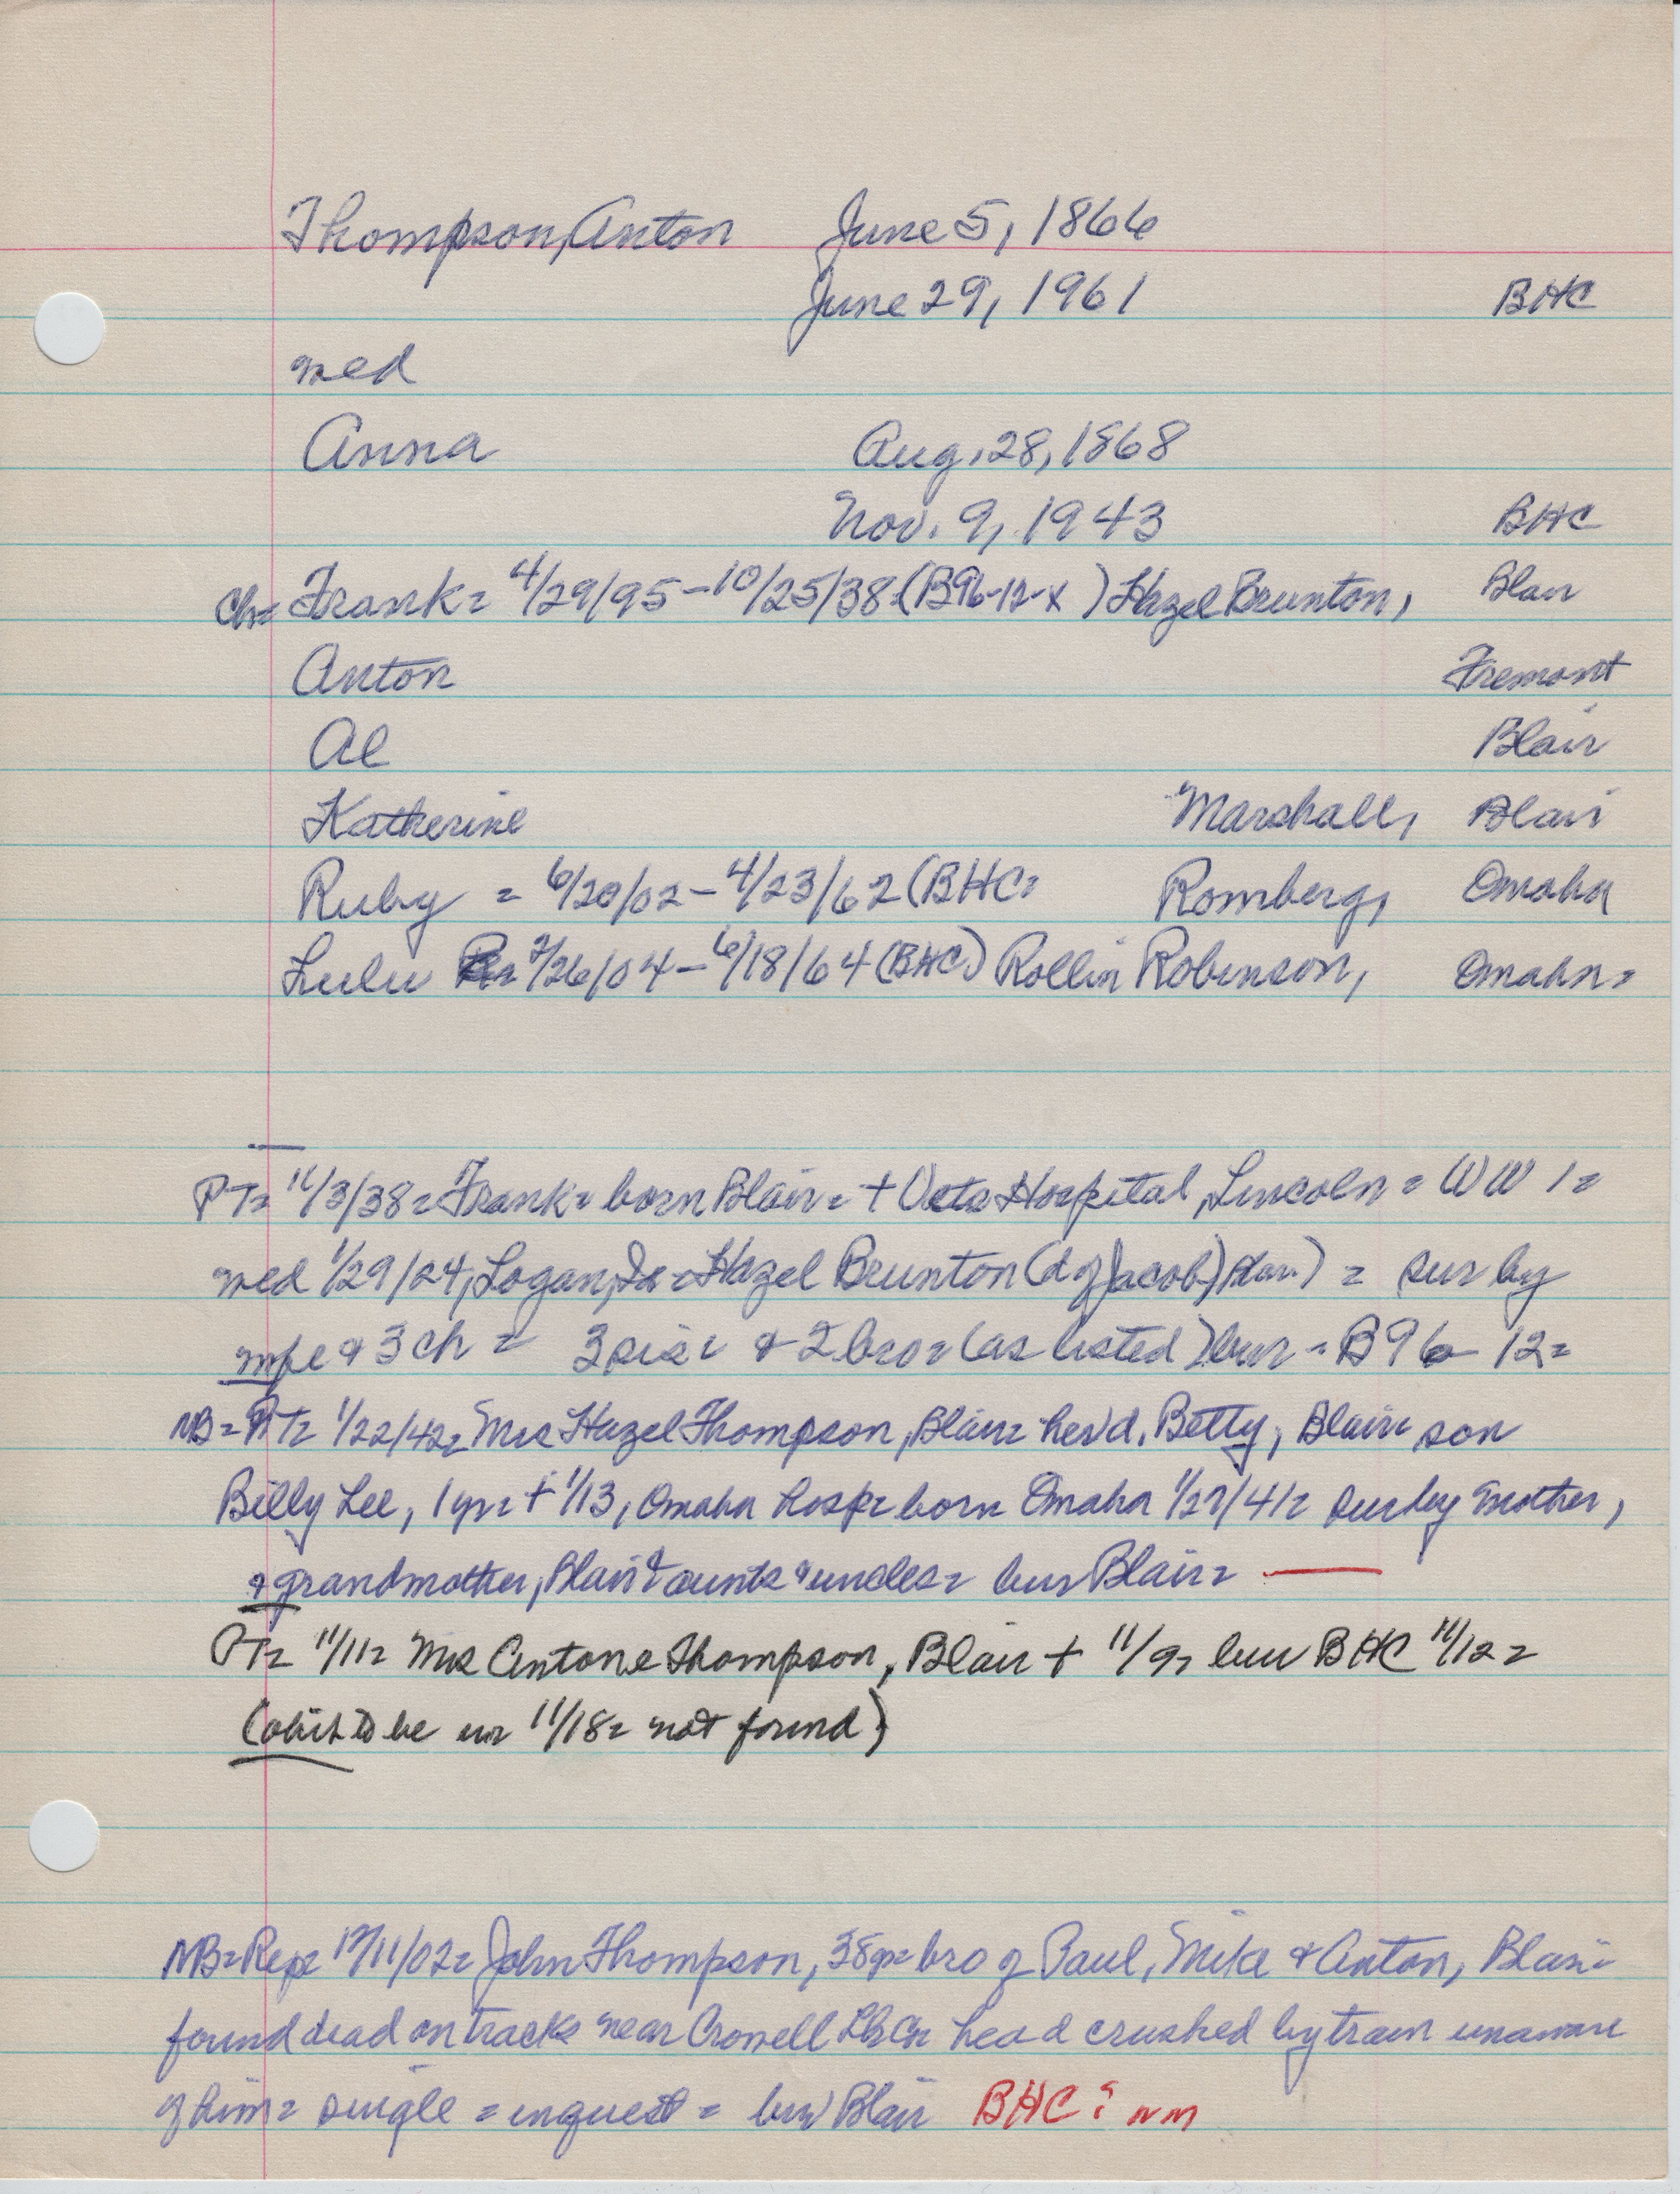 Thompson, Anton June 5, 1866
June 29, 1961 BHC
med
Anna Aug. 28, 1868
Nov. 9, 1943 BHC
Ch= Frank= 4/29/95 - 10/25/38 (B96-12-x) Hazel Brunton, Blair
Anton Fremont
Al Blair
Katherine Marshall, Blair
Ruby = 6/20/02 - 4/23/62 (BHC= Romberg, Omaha
Lulu = 2/26/04 - 6/18/64 (BHC) Rollin Robinson, Omaha=
PT= 11/3/38= Frank= born Blair= + Vets Hospital, Lincoln= WW 1=
med 1/29/24, Logan, Ia= Hazel Brunton (d of Jacob) Blair) = sur by
& 3 ch = 3 sis= & 2 bro= (as listed) bur= B96 12=
NB= PT= 1/22/42= Mrs Hazel Thompson, Blair= her d. Betty, Blair= son
Billy Lee, 1 yr= + 1/13, Omaha hosp= born Omaha 1/27/41= sur by mother,
& grandmother, Blair & aunts & uncles= bur Blair=
PT= 11/11= Mrs Antone Thompson, Blair + 11/9= bur BHC 11/12=
(obit to be in 11/18= not found)
NB= Rep= 12/11/02= John Thompson, 38 yr= bro of Paul, Mike & Anton, Blair=
found dead on tracks near Crowell head crushed by train unaware
of him= single = inquest = bur Blair BHC? nm